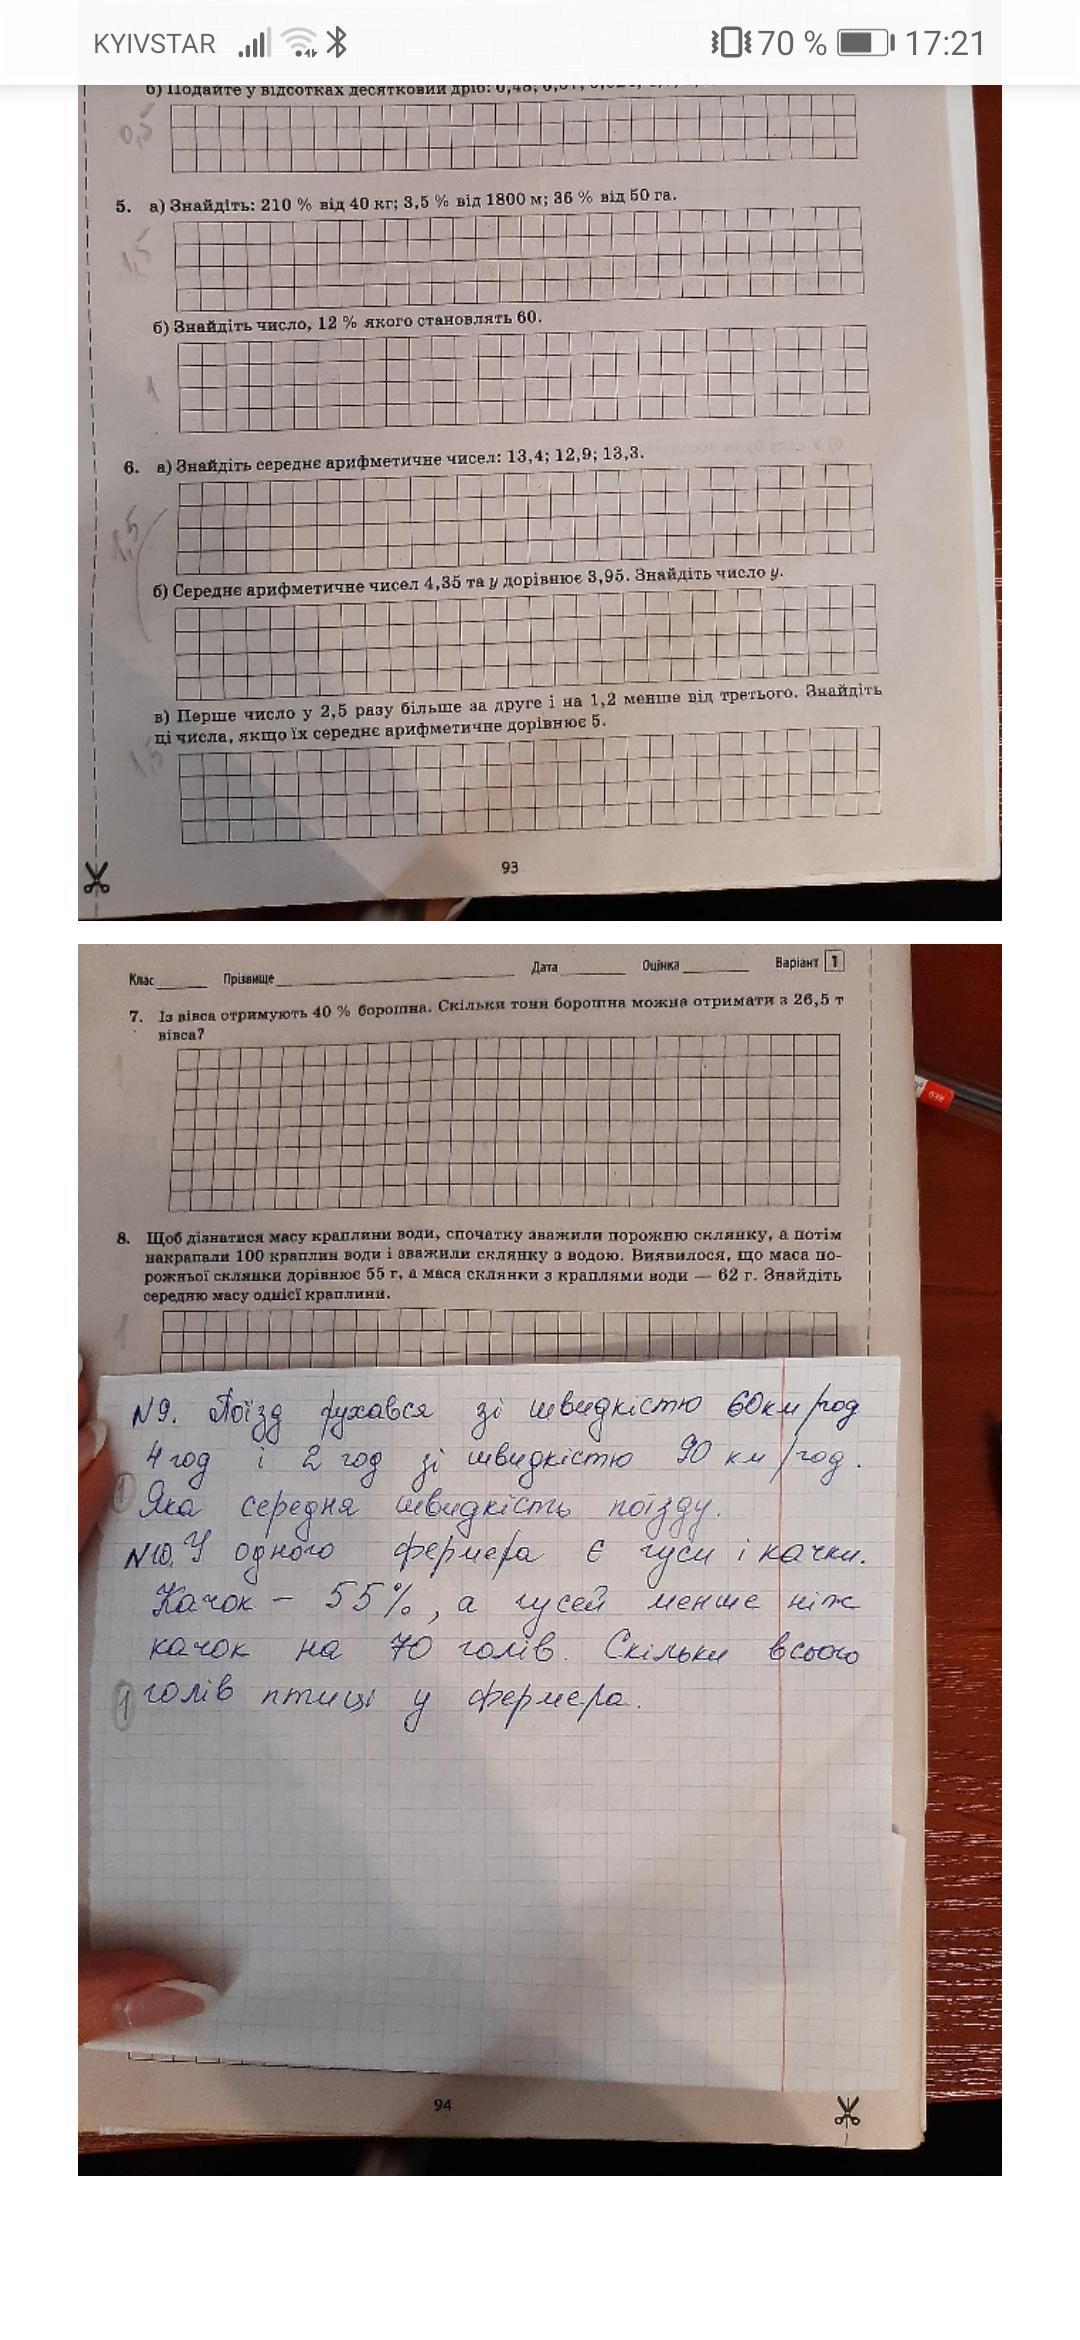 KYIVSTAR 70 % 17:21
б) Подайте у відсотках десятковий дріб: 0,48;
0,5
5. а) Знайдіть: 210 % від 40 кг; 3,5 % від 1800 м; 36 % від 50 га.
1,5
б) Знайдіть число, 12 % якого становлять 60.
1
6. а) Знайдіть середнє арифметичне чисел: 13,4; 12,9; 13,3.
1,5
б) Середнє арифметичне чисел 4,35 та y дорівнює 3,95. Знайдіть число y.
в) Перше число у 2,5 разу більше за друге і на 1,2 менше від третього. Знайдіть
ці числа, якщо їх середнє арифметичне дорівнює 5.
1,5
93
Клас Прізвище Дата Оцінка Варіант 1
7. Із вівса отримують 40 % борошна. Скільки тонн борошна можна отримати з 26,5 т
вівса?
1
8. Щоб дізнатися масу краплини води, спочатку зважили порожню склянку, а потім
накрапали 100 краплин води і зважили склянку з водою. Виявилося, що маса по-
рожньої склянки дорівнює 55 г, а маса склянки з краплями води — 62 г. Знайдіть
середню масу однієї краплини.
1
N9. Поїзд рухався зі швидкістю 60 км/год
4 год і 2 год зі швидкістю 90 км/год.
1 Яка середня швидкість поїзду.
N10. У одного фермера є гуси і качки.
Качок – 55%, а гусей менше ніж
качок на 70 голів. Скільки всього
1 голів птиці у фермера.
94